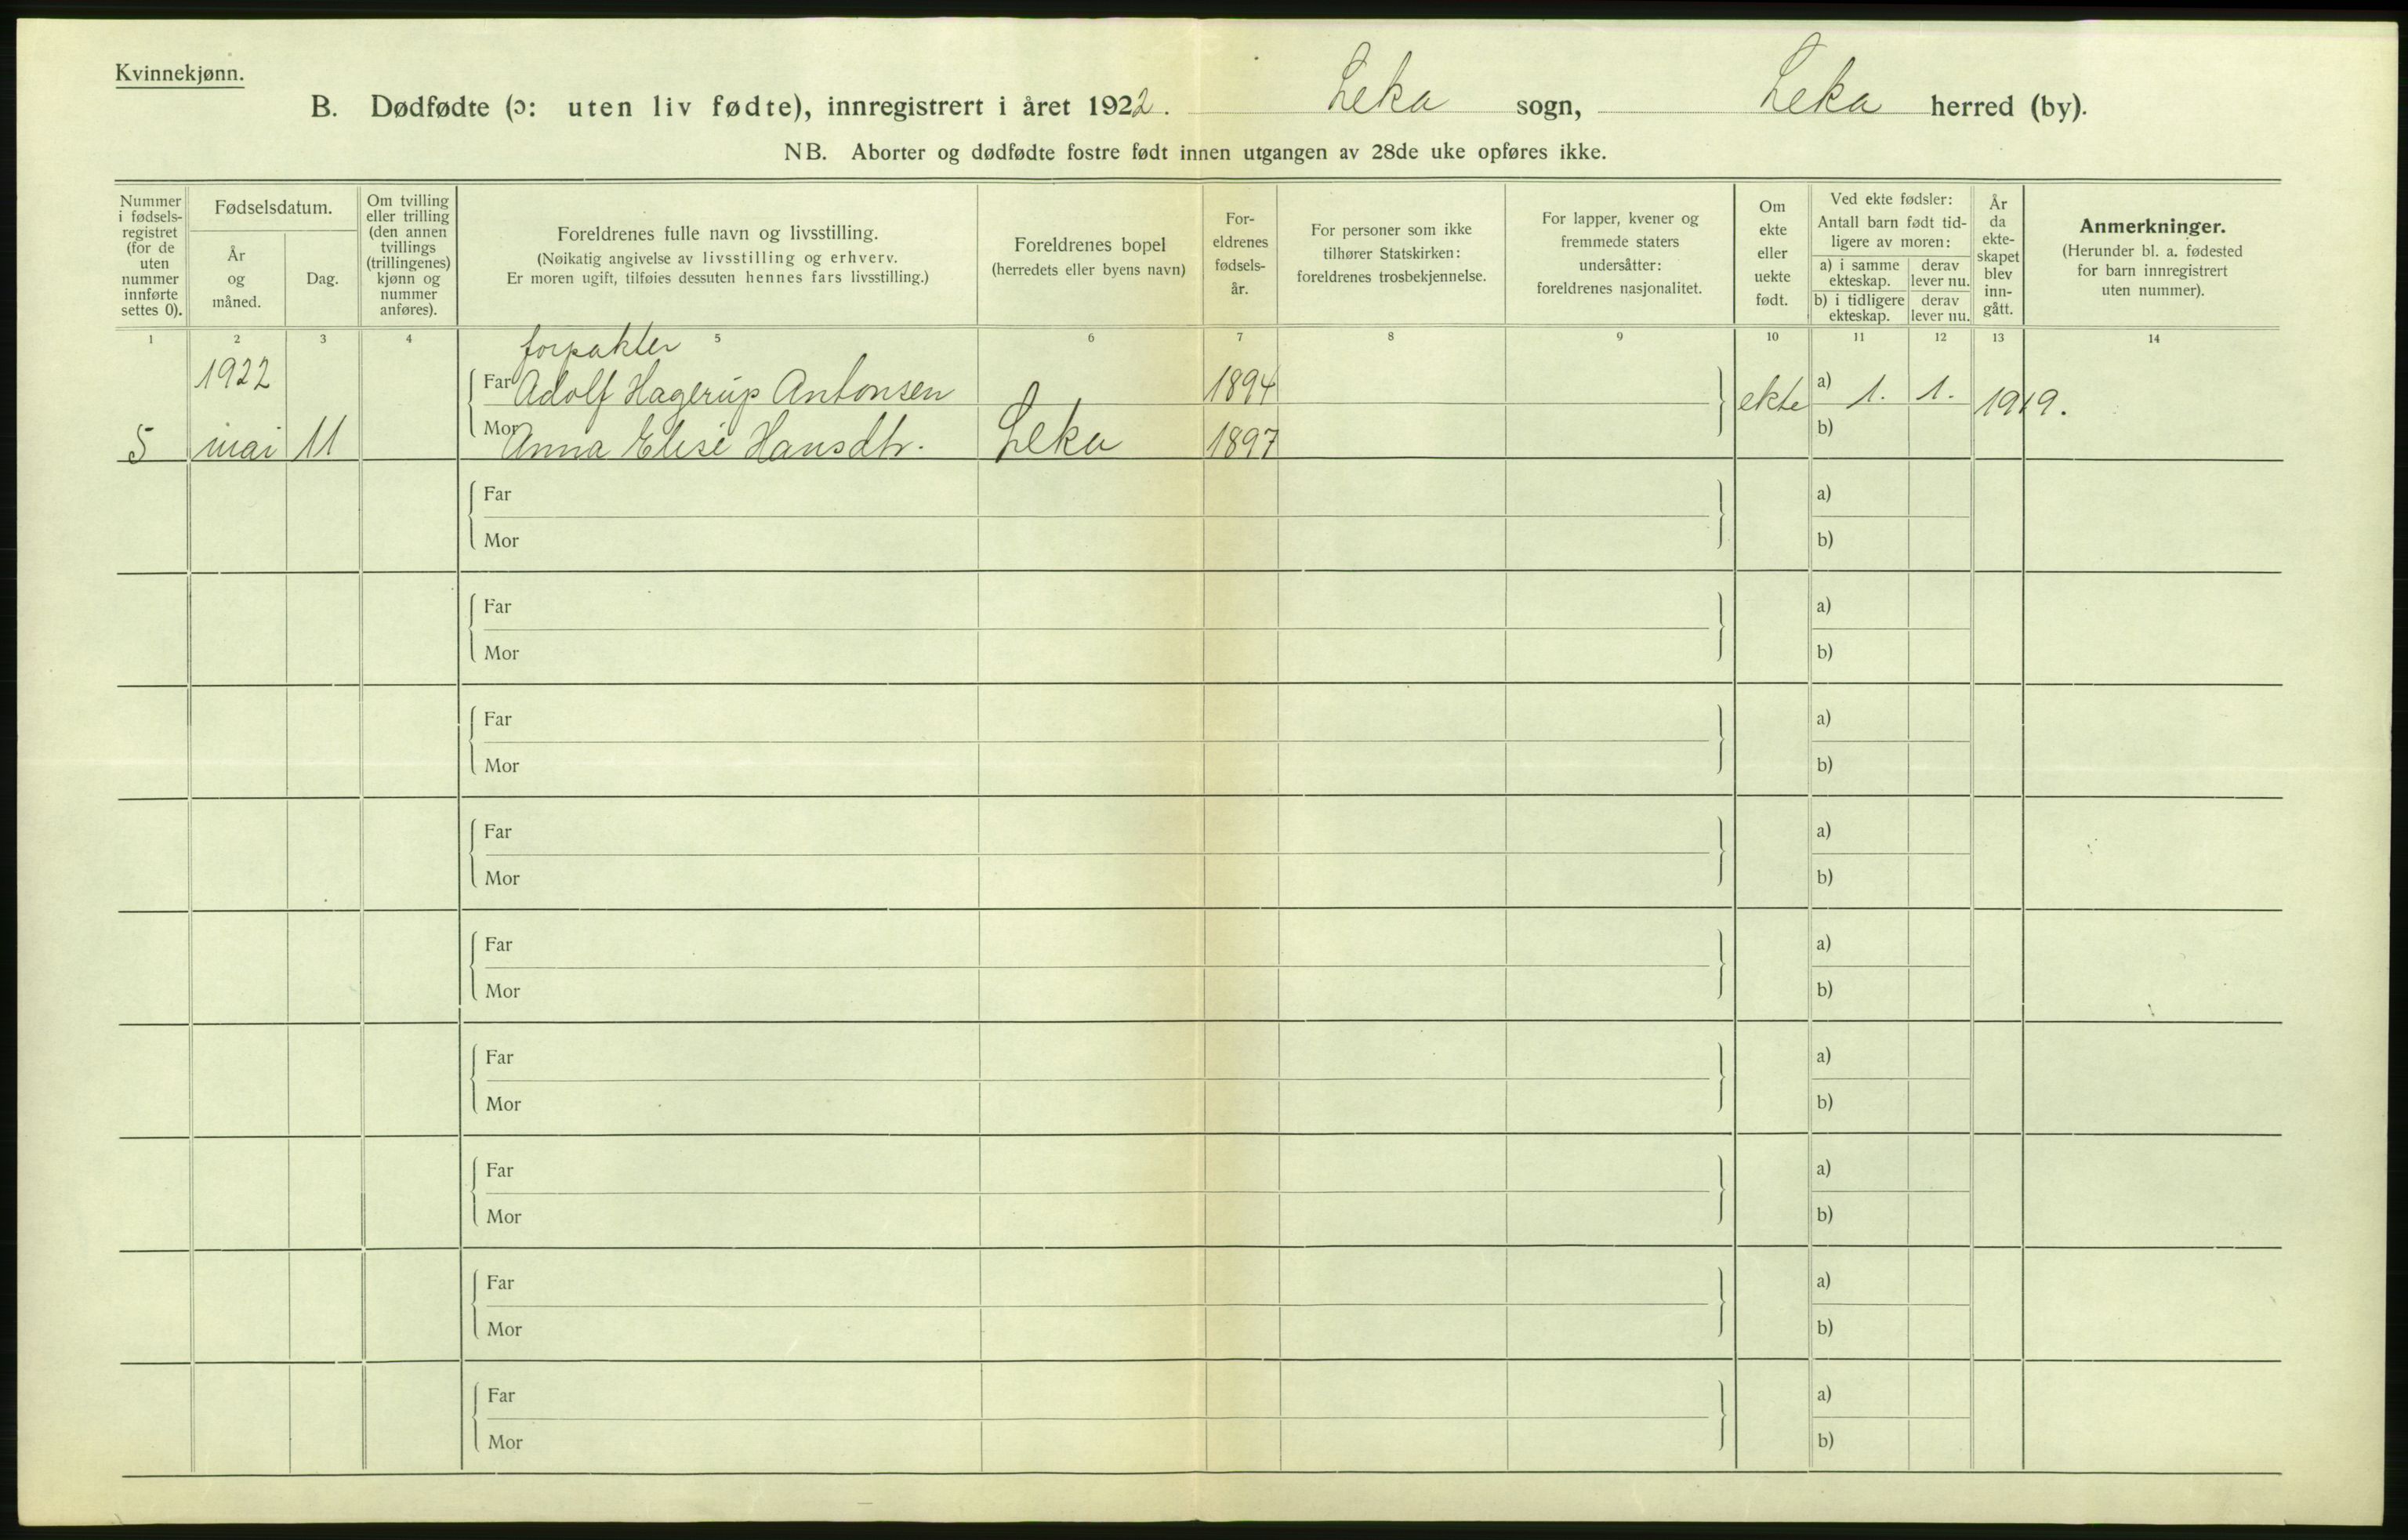 Kvinnekjønn.
B. Dødfødte (ɔ: uten liv fødte), innregistrert i året 1922. Leka sogn, Leka herred (by).
NB. Aborter og dødfødte fostre født innen utgangen av 28de uke opføres ikke.
Nummer
i fødsels-
registret
(for de
uten
nummer
innførte
settes 0).
Fødselsdatum.
År
og
måned.
Dag.
Om tvilling
eller trilling
(den annen
tvillings
(trillingenes)
kjønn og
nummer
anføres).
Foreldrenes fulle navn og livsstilling.
(Nøikatig angivelse av livsstilling og erhverv.
Er moren ugift, tilføies dessuten hennes fars livsstilling.)
Foreldrenes bopel
(herredets eller byens navn)
For-
eldrenes
fødsels-
år.
For personer som ikke
tilhører Statskirken:
foreldrenes trosbekjennelse.
For lapper, kvener og
fremmede staters
undersåtter:
foreldrenes nasjonalitet.
Om
ekte
eller
uekte
født.
Ved ekte fødsler:
Antall barn født tid-
ligere av moren:
a) i samme
ekteskap.
derav
lever nu.
b) i tidligere
ekteskap.
derav
lever nu.
År
da
ekte-
skapet
blev
inn-
gått.
Anmerkninger.
(Herunder bl. a. fødested
for barn innregistrert
uten nummer).
1 2 3 4 5 6 7 8 9 10 11 12 13 14
forpakter
1922 Far Adolf Hagerup Antonsen 1894 ekte a) 1. 1. 1919.
5 mai 11 Mor Anna Elise Hansdtr. Leka 1897 b)
Far a)
Mor b)
Far a)
Mor b)
Far a)
Mor b)
Far a)
Mor b)
Far a)
Mor b)
Far a)
Mor b)
Far a)
Mor b)
Far a)
Mor b)
Far a)
Mor b)